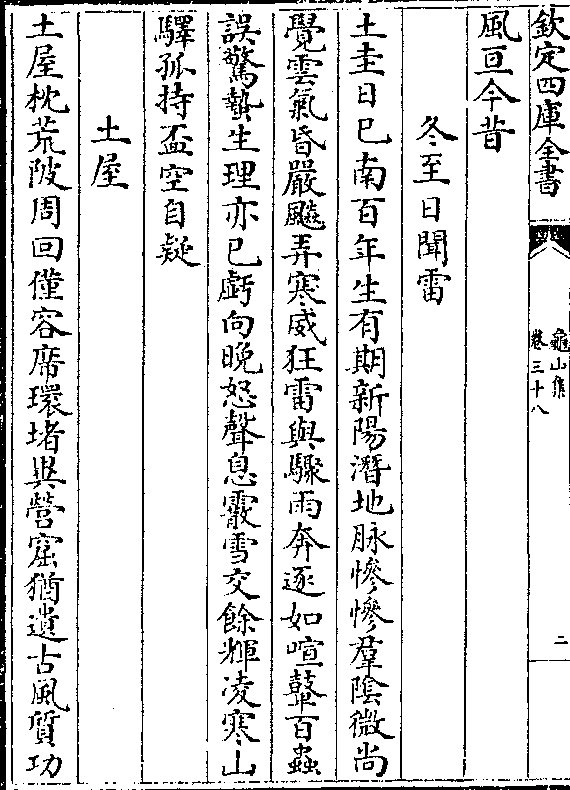 欽定四庫全書
龜山集
卷三十八
二
風亘今昔
冬至日聞雷
土圭日已南百年生有期新陽潛地脉慘慘羣陰微尚
覺雲氣昏嚴飈弄寒威狂雷與驟雨奔逐如喧鼙百蟲
誤驚蟄生理亦已虧向晚怒聲息霰雪交餘輝凌寒山
驛孤持盃空自疑
土屋
土屋枕荒陂周回僅容席環堵與營窟猶遺古風質功